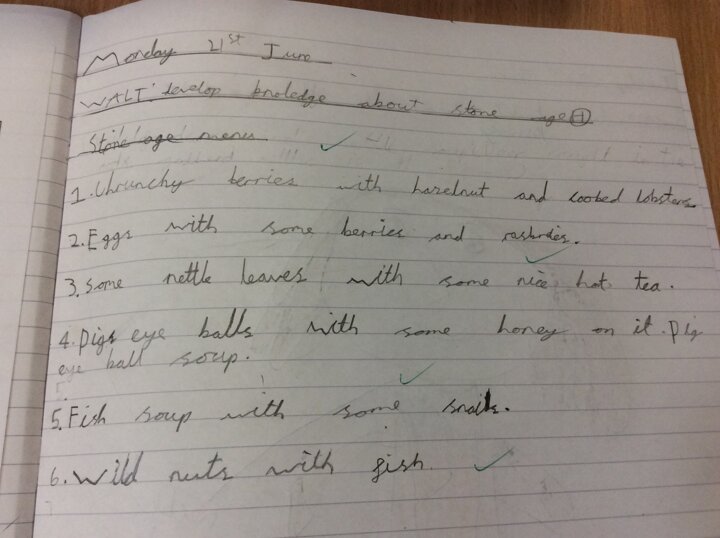 Monday 21st June
WALT: develop knoledge about stone age
Stone age menu
1. Chrunchy berries with hazelnut and cooked lobsters
2. Eggs with some berries and rasbries.
3. Some nettle leaves with some nice hot tea.
4. pigs eye balls with some honey on it. pig
eye ball soup.
5. Fish soup with some snails.
6. Wild nuts with fish.